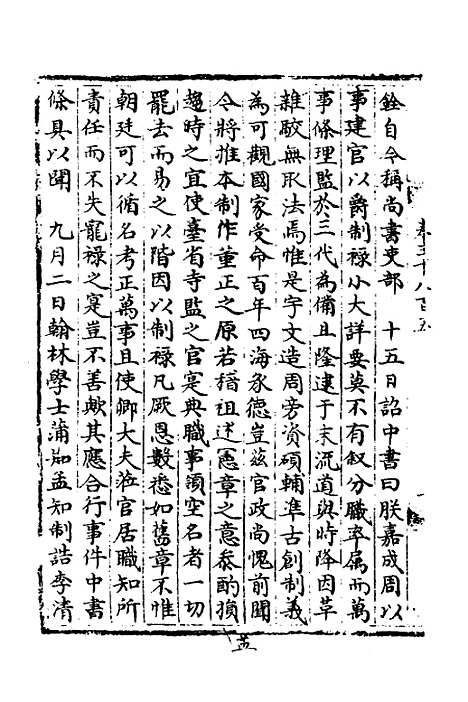 銓自今稱尚書吏部　十五日詔中書曰朕嘉成周以
事建官以爵制禄小大詳要莫不有叙分職率属而萬
事條理監於三代為備且隆逮于末流道與時降因革
雜駮無取法焉惟是宇文造周旁資碩輔凖古創制義
為可觀國家受命百年四海承德豈兹官政尚愧前聞
今將推本制作董正之原若稽祖述憲章之意叅酌損
趨時之宜使臺省寺監之官寔典職事領空名者一切
罷去而易之以階因以制禄凡厥恩數悉如舊章不惟
朝廷可以循名考正萬事且使卿大夫莅官居職知所
責任而不失寵禄之寔豈不善歟其應合行事件中書
條具以聞　九月二日翰林學士蒲宗孟知制誥李清